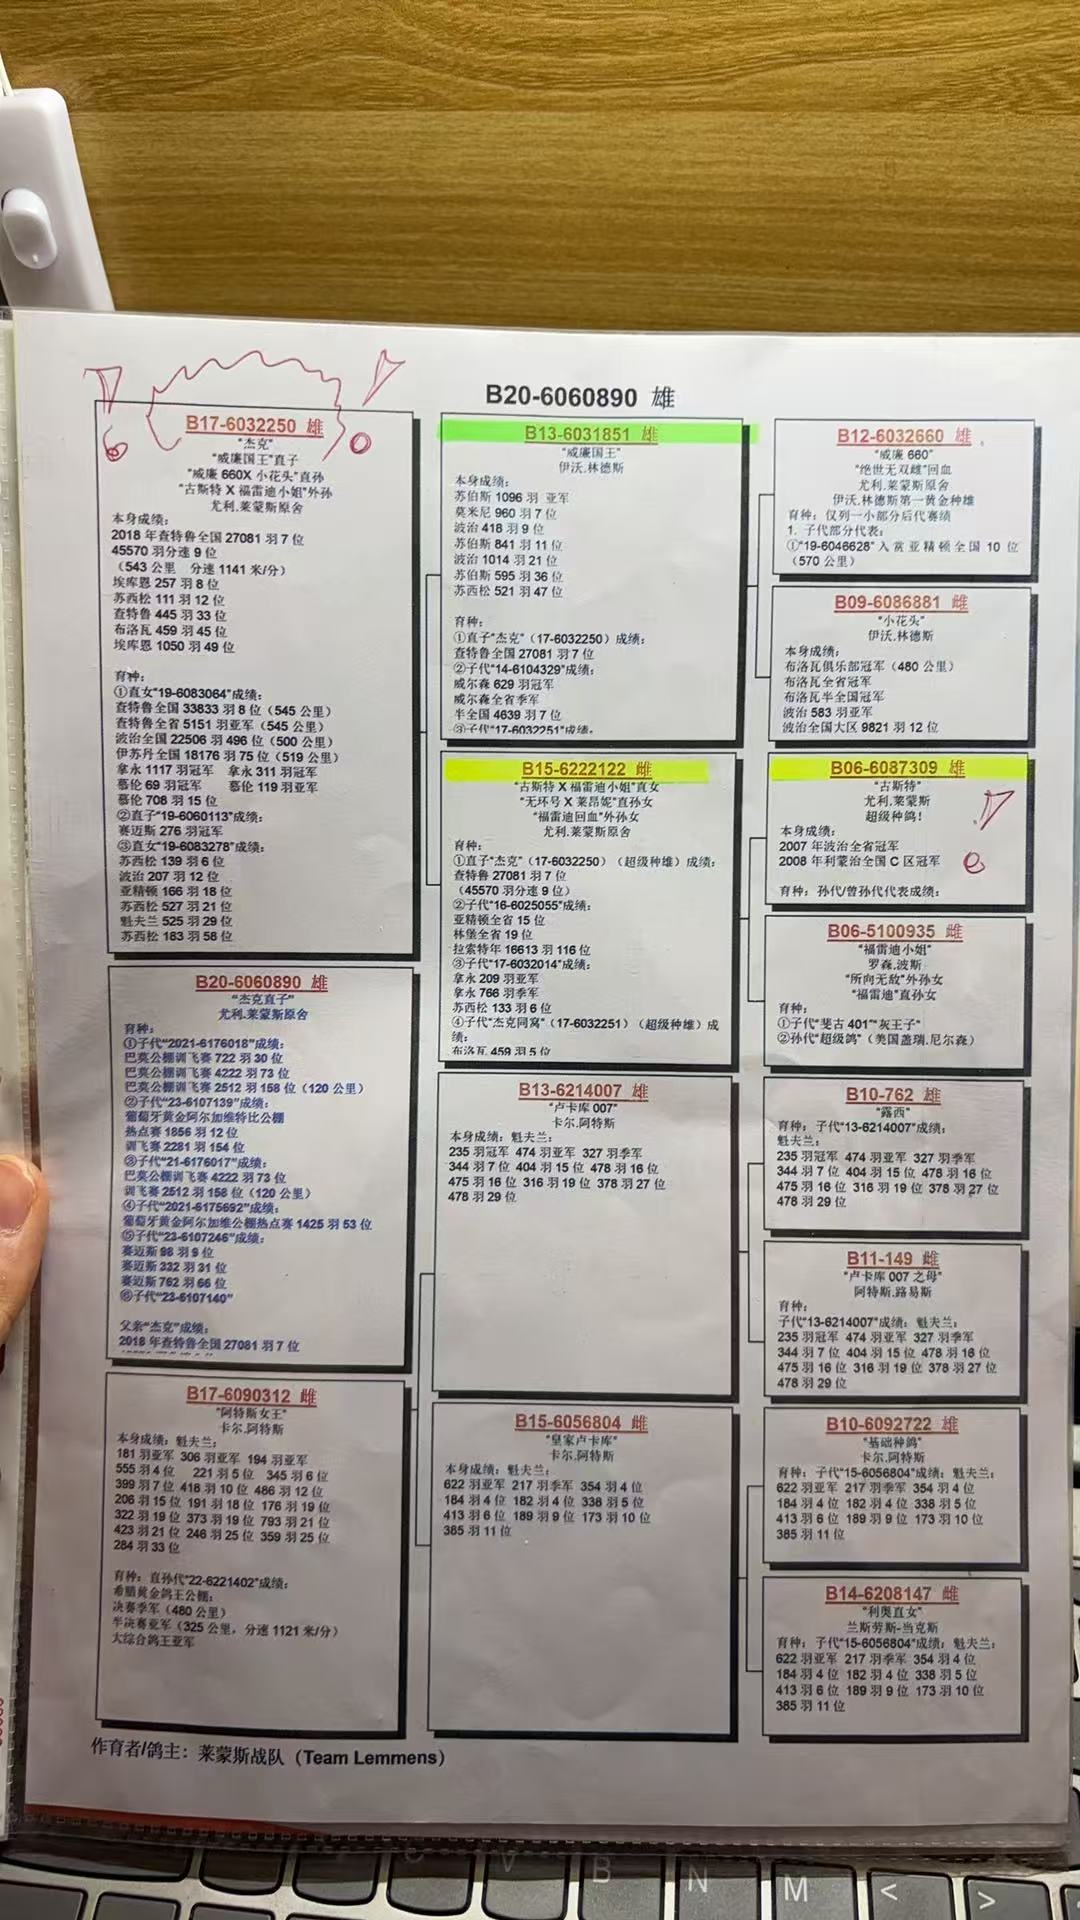 B20-6060890 雄
B17-6032250 雄
"杰克"
"威廉国王"直子
"威廉 660X 小花头"直孙
"古斯特 X 福雷迪小姐"外孙
尤利.莱蒙斯原舍
本身成绩：
2018 年查特鲁全国 27081 羽 7 位
45570 羽分速 9 位
（543 公里 分速 1141 米/分）
埃库恩 257 羽 8 位
苏西松 111 羽 12 位
查特鲁 445 羽 33 位
布洛瓦 459 羽 45 位
埃库恩 1050 羽 49 位
育种：
①直女"19-6083064"成绩：
查特鲁全国 33833 羽 8 位（545 公里）
查特鲁全省 5151 羽亚军（545 公里）
波治全国 22506 羽 496 位（500 公里）
伊苏丹全国 18176 羽 75 位（519 公里）
拿永 1117 羽冠军 拿永 311 羽冠军
慕伦 69 羽冠军 慕伦 119 羽亚军
慕伦 708 羽 15 位
②直子"19-6060113"成绩：
赛迈斯 276 羽冠军
③直女"19-6083278"成绩：
苏西松 139 羽 6 位
波治 207 羽 12 位
亚精顿 166 羽 18 位
苏西松 527 羽 21 位
魁夫兰 525 羽 29 位
苏西松 183 羽 58 位
B20-6060890 雄
"杰克直子"
尤利.莱蒙斯原舍
育种：
①子代"2021-6176018"成绩：
巴莫公棚训飞赛 722 羽 30 位
巴莫公棚训飞赛 4222 羽 73 位
巴莫公棚训飞赛 2512 羽 158 位（120 公里）
②子代"23-6107139"成绩：
葡萄牙黄金阿尔加维特比公棚
热点赛 1856 羽 12 位
训飞赛 2281 羽 154 位
③子代"21-6176017"成绩：
巴莫公棚训飞赛 4222 羽 73 位
训飞赛 2512 羽 158 位（120 公里）
④子代"2021-6175692"成绩：
葡萄牙黄金阿尔加维公棚热点赛 1425 羽 53 位
⑤子代"23-6107246"成绩：
赛迈斯 98 羽 9 位
赛迈斯 332 羽 31 位
赛迈斯 762 羽 66 位
⑥子代"23-6107140"
父亲"杰克"成绩：
2018 年查特鲁全国 27081 羽 7 位
B17-6090312 雌
"阿特斯女王"
卡尔.阿特斯
本身成绩：魁夫兰：
181 羽亚军 306 羽亚军 194 羽亚军
555 羽 4 位 221 羽 5 位 345 羽 6 位
399 羽 7 位 418 羽 10 位 486 羽 12 位
206 羽 15 位 191 羽 18 位 176 羽 19 位
322 羽 19 位 373 羽 19 位 793 羽 21 位
423 羽 21 位 246 羽 25 位 359 羽 25 位
284 羽 33 位
育种：直孙代"22-6221402"成绩：
希腊黄金鸽王公棚：
决赛季军（480 公里）
半决赛亚军（325 公里，分速 1121 米/分）
大综合鸽王亚军
B13-6031851 雄
"威廉国王"
伊沃.林德斯
本身成绩：
苏伯斯 1096 羽 亚军
莫米尼 960 羽 7 位
波治 418 羽 9 位
苏伯斯 841 羽 11 位
波治 1014 羽 21 位
苏伯斯 595 羽 36 位
苏西松 521 羽 47 位
育种：
①直子"杰克"（17-6032250）成绩：
查特鲁全国 27081 羽 7 位
②子代"14-6104329"成绩：
威尔森 629 羽冠军
威尔森全省季军
半全国 4639 羽 7 位
③子代"17-6032251"成绩：
B15-6222122 雌
"古斯特 X 福雷迪小姐"直女
"无环号 X 莱昂妮"直孙女
"福雷迪回血"外孙女
尤利.莱蒙斯原舍
育种：
①直子"杰克"（17-6032250）（超级种雄）成绩：
查特鲁 27081 羽 7 位
（45570 羽分速 9 位）
②子代"16-6025055"成绩：
亚精顿全省 15 位
林堡全省 19 位
拉索特年 16613 羽 116 位
③子代"17-6032014"成绩：
拿永 209 羽亚军
拿永 766 羽季军
苏西松 133 羽 6 位
④子代"杰克同窝"（17-6032251）（超级种雄）成
绩：
布洛瓦 459 羽 5 位
B13-6214007 雄
"卢卡库 007"
卡尔.阿特斯
本身成绩：魁夫兰：
235 羽冠军 474 羽亚军 327 羽季军
344 羽 7 位 404 羽 15 位 478 羽 16 位
475 羽 16 位 316 羽 19 位 378 羽 27 位
478 羽 29 位
B15-6056804 雌
"皇家卢卡库"
卡尔.阿特斯
本身成绩：魁夫兰：
622 羽亚军 217 羽季军 354 羽 4 位
184 羽 4 位 182 羽 4 位 338 羽 5 位
413 羽 6 位 189 羽 9 位 173 羽 10 位
385 羽 11 位
B12-6032660 雄
"威廉 660"
"绝世无双雌"回血
尤利.莱蒙斯原舍
伊沃.林德斯第一黄金种雄
育种：仅列一小部分后代赛绩
1. 子代部分代表：
①"19-6046628"入赏亚精顿全国 10 位
（570 公里）
B09-6086881 雌
"小花头"
伊沃.林德斯
本身成绩：
布洛瓦俱乐部冠军（480 公里）
布洛瓦全省冠军
布洛瓦半全国冠军
波治 583 羽亚军
波治全国大区 9821 羽 12 位
B06-6087309 雄
"古斯特"
尤利.莱蒙斯
超级种鸽！
本身成绩：
2007 年波治全省冠军
2008 年利蒙治全国 C 区冠军
育种：孙代/曾孙代代表成绩：
B06-5100935 雌
"福雷迪小姐"
罗森.波斯
"所向无敌"外孙女
"福雷迪"直孙女
育种：
①子代"斐古 401""灰王子"
②孙代"超级鸽"（美国盖瑞.尼尔森）
B10-762 雄
"露西"
育种：子代"13-6214007"成绩：
魁夫兰：
235 羽冠军 474 羽亚军 327 羽季军
344 羽 7 位 404 羽 15 位 478 羽 16 位
475 羽 16 位 316 羽 19 位 378 羽 27 位
478 羽 29 位
B11-149 雌
"卢卡库 007 之母"
阿特斯.路易斯
育种：
子代"13-6214007"成绩：魁夫兰：
235 羽冠军 474 羽亚军 327 羽季军
344 羽 7 位 404 羽 15 位 478 羽 16 位
475 羽 16 位 316 羽 19 位 378 羽 27 位
478 羽 29 位
B10-6092722 雄
"基础种鸽"
卡尔.阿特斯
育种：子代"15-6056804"成绩：魁夫兰：
622 羽亚军 217 羽季军 354 羽 4 位
184 羽 4 位 182 羽 4 位 338 羽 5 位
413 羽 6 位 189 羽 9 位 173 羽 10 位
385 羽 11 位
B14-6208147 雌
"利奥直女"
兰斯劳斯-当克斯
育种：子代"15-6056804"成绩：魁夫兰：
622 羽亚军 217 羽季军 354 羽 4 位
184 羽 4 位 182 羽 4 位 338 羽 5 位
413 羽 6 位 189 羽 9 位 173 羽 10 位
385 羽 11 位
作育者/鸽主：莱蒙斯战队（Team Lemmens）
V B N M < >